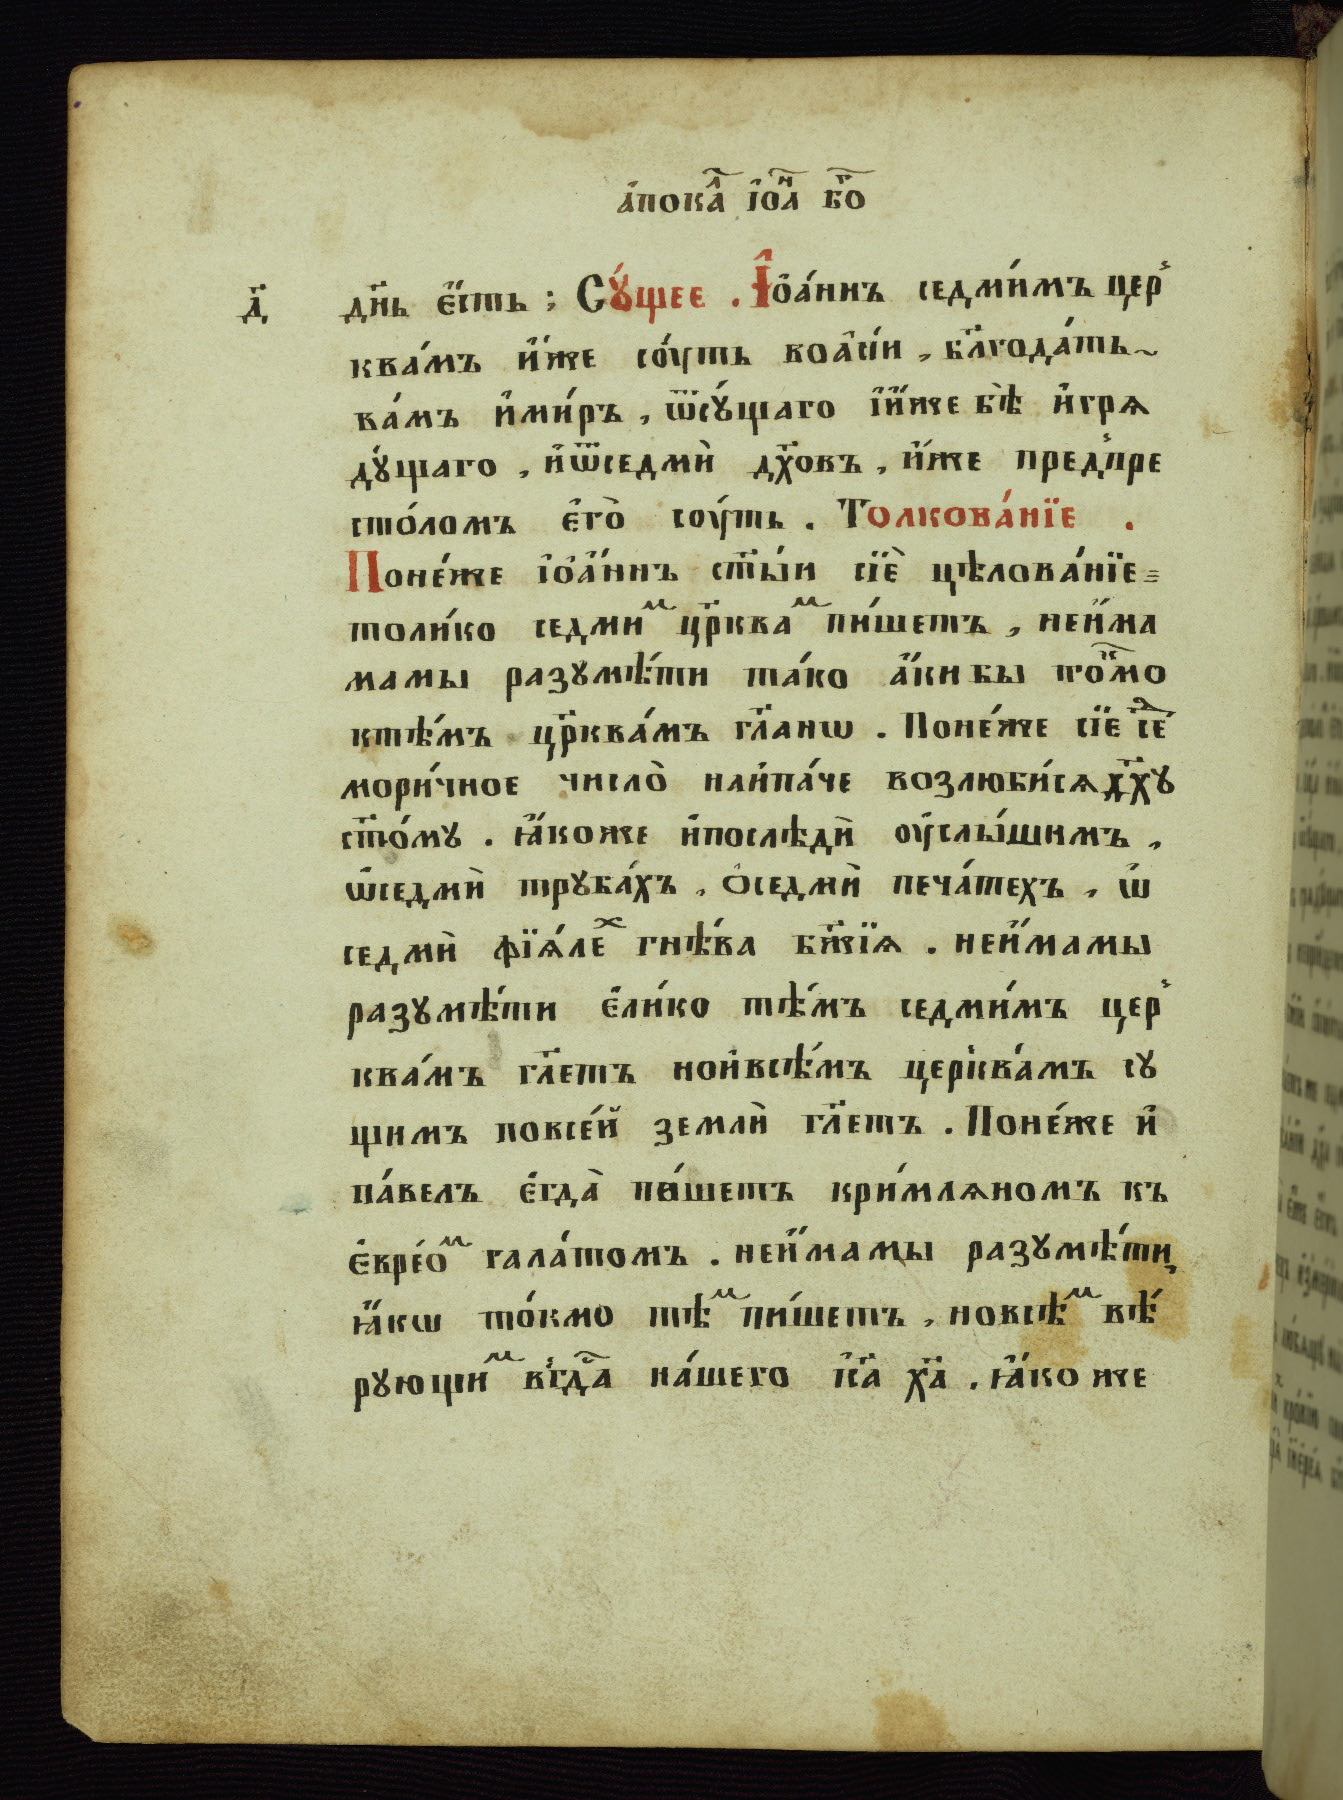 а҆покⷧ҇а і҆ѡⷩ҇а бⷢ҇о
д҃
дн҃ь є҆́сть ; Сꙋ́щее . І҆оа́ннъ седми́мъ цер̾
ква́мъ и҆̀же сꙋ́ть воа҆сі́и , бл҃года́ть
ва́мъ и҆ми́ръ , ѿсꙋ́щаго і҆и҆́же бѣ̀ и҆гря
дꙋ́щаго , и҆ѿседмѝ дх҃овъ , и҆́же пред̾пре
сто́ломъ є҆гѡ̀ сꙋ́ть . Толкова́нїе .
Поне́же і҆оа́ннъ ст҃ы́и сїѐ цѣлова́нїе
толи́ко седмиⷨ цр҃кваⷨ пи́шетъ , неи҆́ма
мамы разꙋмѣ́ти та́ко а҆́ки бы тоⷦ҇мо
ктѣ́мъ цр҃ква́мъ гл҃анѡ . Поне́же сїе сеⷣ
мори́чное число̀ наипа́че возлюби́ся дх҃ꙋ
ст҃о́мꙋ . ꙗ҆́коже и҆послѣдѝ оу҆слы́шимъ ,
ѡ҆седмѝ трꙋба́хъ , ѻ҆седмѝ печа́техъ , ѡ҆
седмѝ фїѧ́леⷯ гнѣ́ва бж҃їѧ . неи҆́мамы
разꙋмѣ́ти є҆ли́ко тѣ́мъ седми́мъ цер̾
ква́мъ гл҃етъ нои҆всѣ́мъ цер̾ква́мъ сꙋ
щимъ повсе́й землѝ гл҃етъ . Поне́же и҆
па́велъ є҆гда̀ пи́шетъ кри́млѧномъ къ
є҆вре́оⷨ гала́томъ . неи҆́мамы разꙋмѣ́ти,
ꙗ҆́кѡ то́кмо тѣⷨ пи́шетъ , новсѣⷨ вѣ́
рꙋющиⷨ вгⷭ҇да на́шего іс҃а х҃а . ꙗ҆́коже